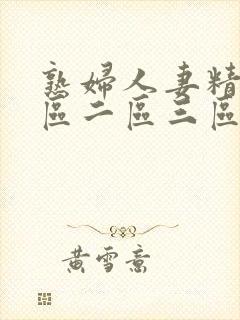 熟婦人妻精
區二區三區
黃雪意